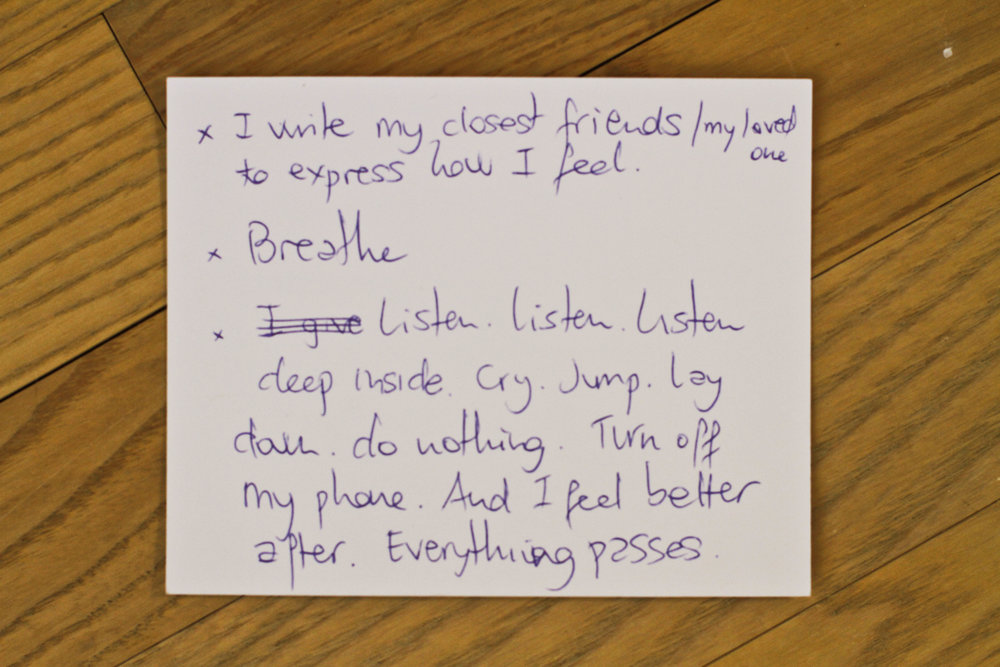 x I write my closest friends / my loved one
to express how I feel.
x Breathe
x I give Listen. Listen. Listen
deep inside. Cry. Jump. Lay
down. do nothing. Turn off
my phone. And I feel better
after. Everything passes.